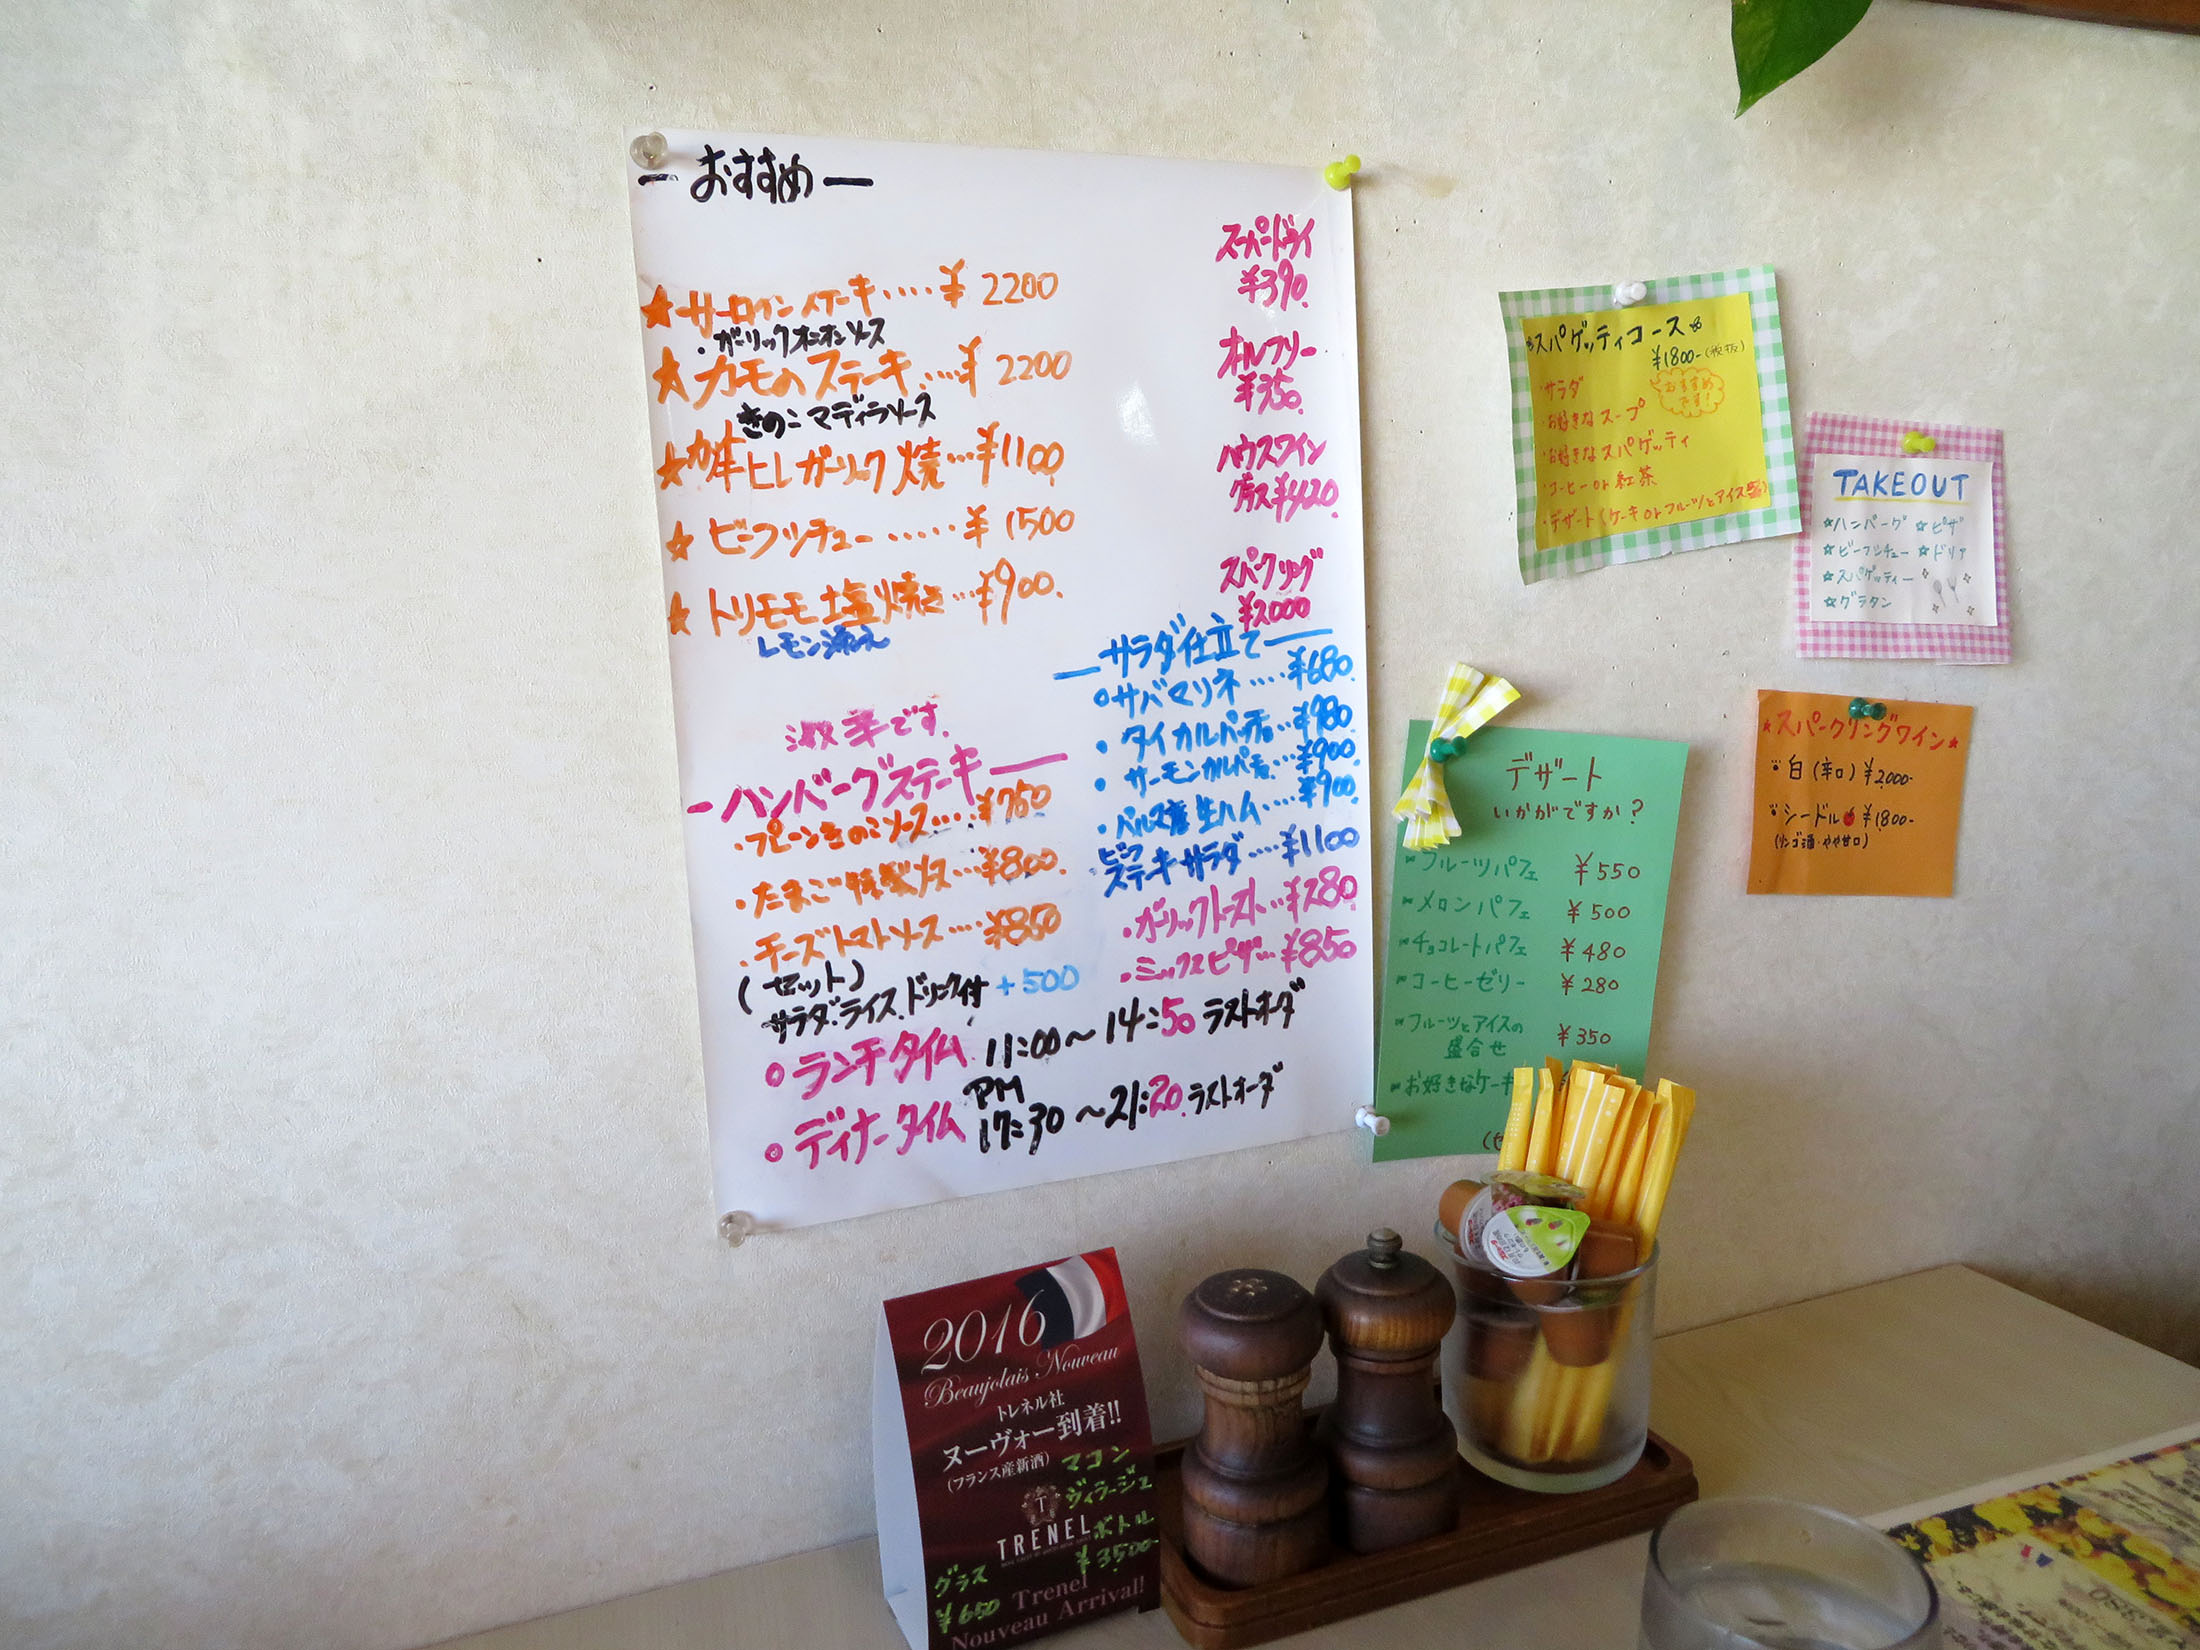 ー おすすめ ー
★サーロインステーキ‥‥¥2200
・ガーリックオニオンソース
★カモのステーキ‥‥¥2200
きのこマディラソース
★牛ヒレガーリック焼‥¥1100
★ビーフシチュー‥‥‥¥1500
★トリモモ塩焼き‥¥900.
レモン添え
スーパードライ
¥390.
オールフリー
¥350.
ハウスワイン
グラス¥420.
スパークリング
¥2000
ーサラダ仕立てー
○サバマリネ‥‥¥680.
・タイカルパッチョ‥¥980.
・サーモンカルパッチョ‥¥900.
・パルマ産生ハム‥‥¥900.
ビーフ
ステーキサラダ‥‥¥1100
・ガーリックトースト‥¥280.
・ミックスピザ‥¥850
激辛です.
ーハンバーグステーキー
・きのこソース‥‥¥750
・たまご特製ソース‥¥800.
・チーズトマトソース‥‥¥850
(セット)
サラダ.ライス.ドリンク付 +500
○ランチタイム 11:00〜14:50 ラストオーダ
PM
○ディナータイム 17:30〜21:20.ラストオーダ
スパゲッティコース
¥1800-(税抜)
・サラダ
おすすめ
です!
・お好きなスープ
・お好きなスパゲッティ
・コーヒー or 紅茶
・デザート(ケーキ or フルーツとアイス)
TAKEOUT
☆ハンバーグ ☆ピザ
☆ビーフシチュー ☆ドリア
☆スパゲッティー
☆グラタン
★スパークリングワイン★
白(辛口)¥2000-
シードル ¥1800-
(リンゴ酒・やや甘口)
デザート
いかがですか?
フルーツパフェ ¥550
メロンパフェ ¥500
チョコレートパフェ ¥480
コーヒーゼリー ¥280
フルーツとアイスの
盛合せ ¥350
お好きなケーキ
2016
Beaujolais Nouveau
トレネル社
ヌーヴォー到着!!
(フランス産新酒)
マコン
ヴィラージュ
T
TRENEL
ボトル
¥3500-
グラス
¥650
Trenel
Nouveau Arrival!